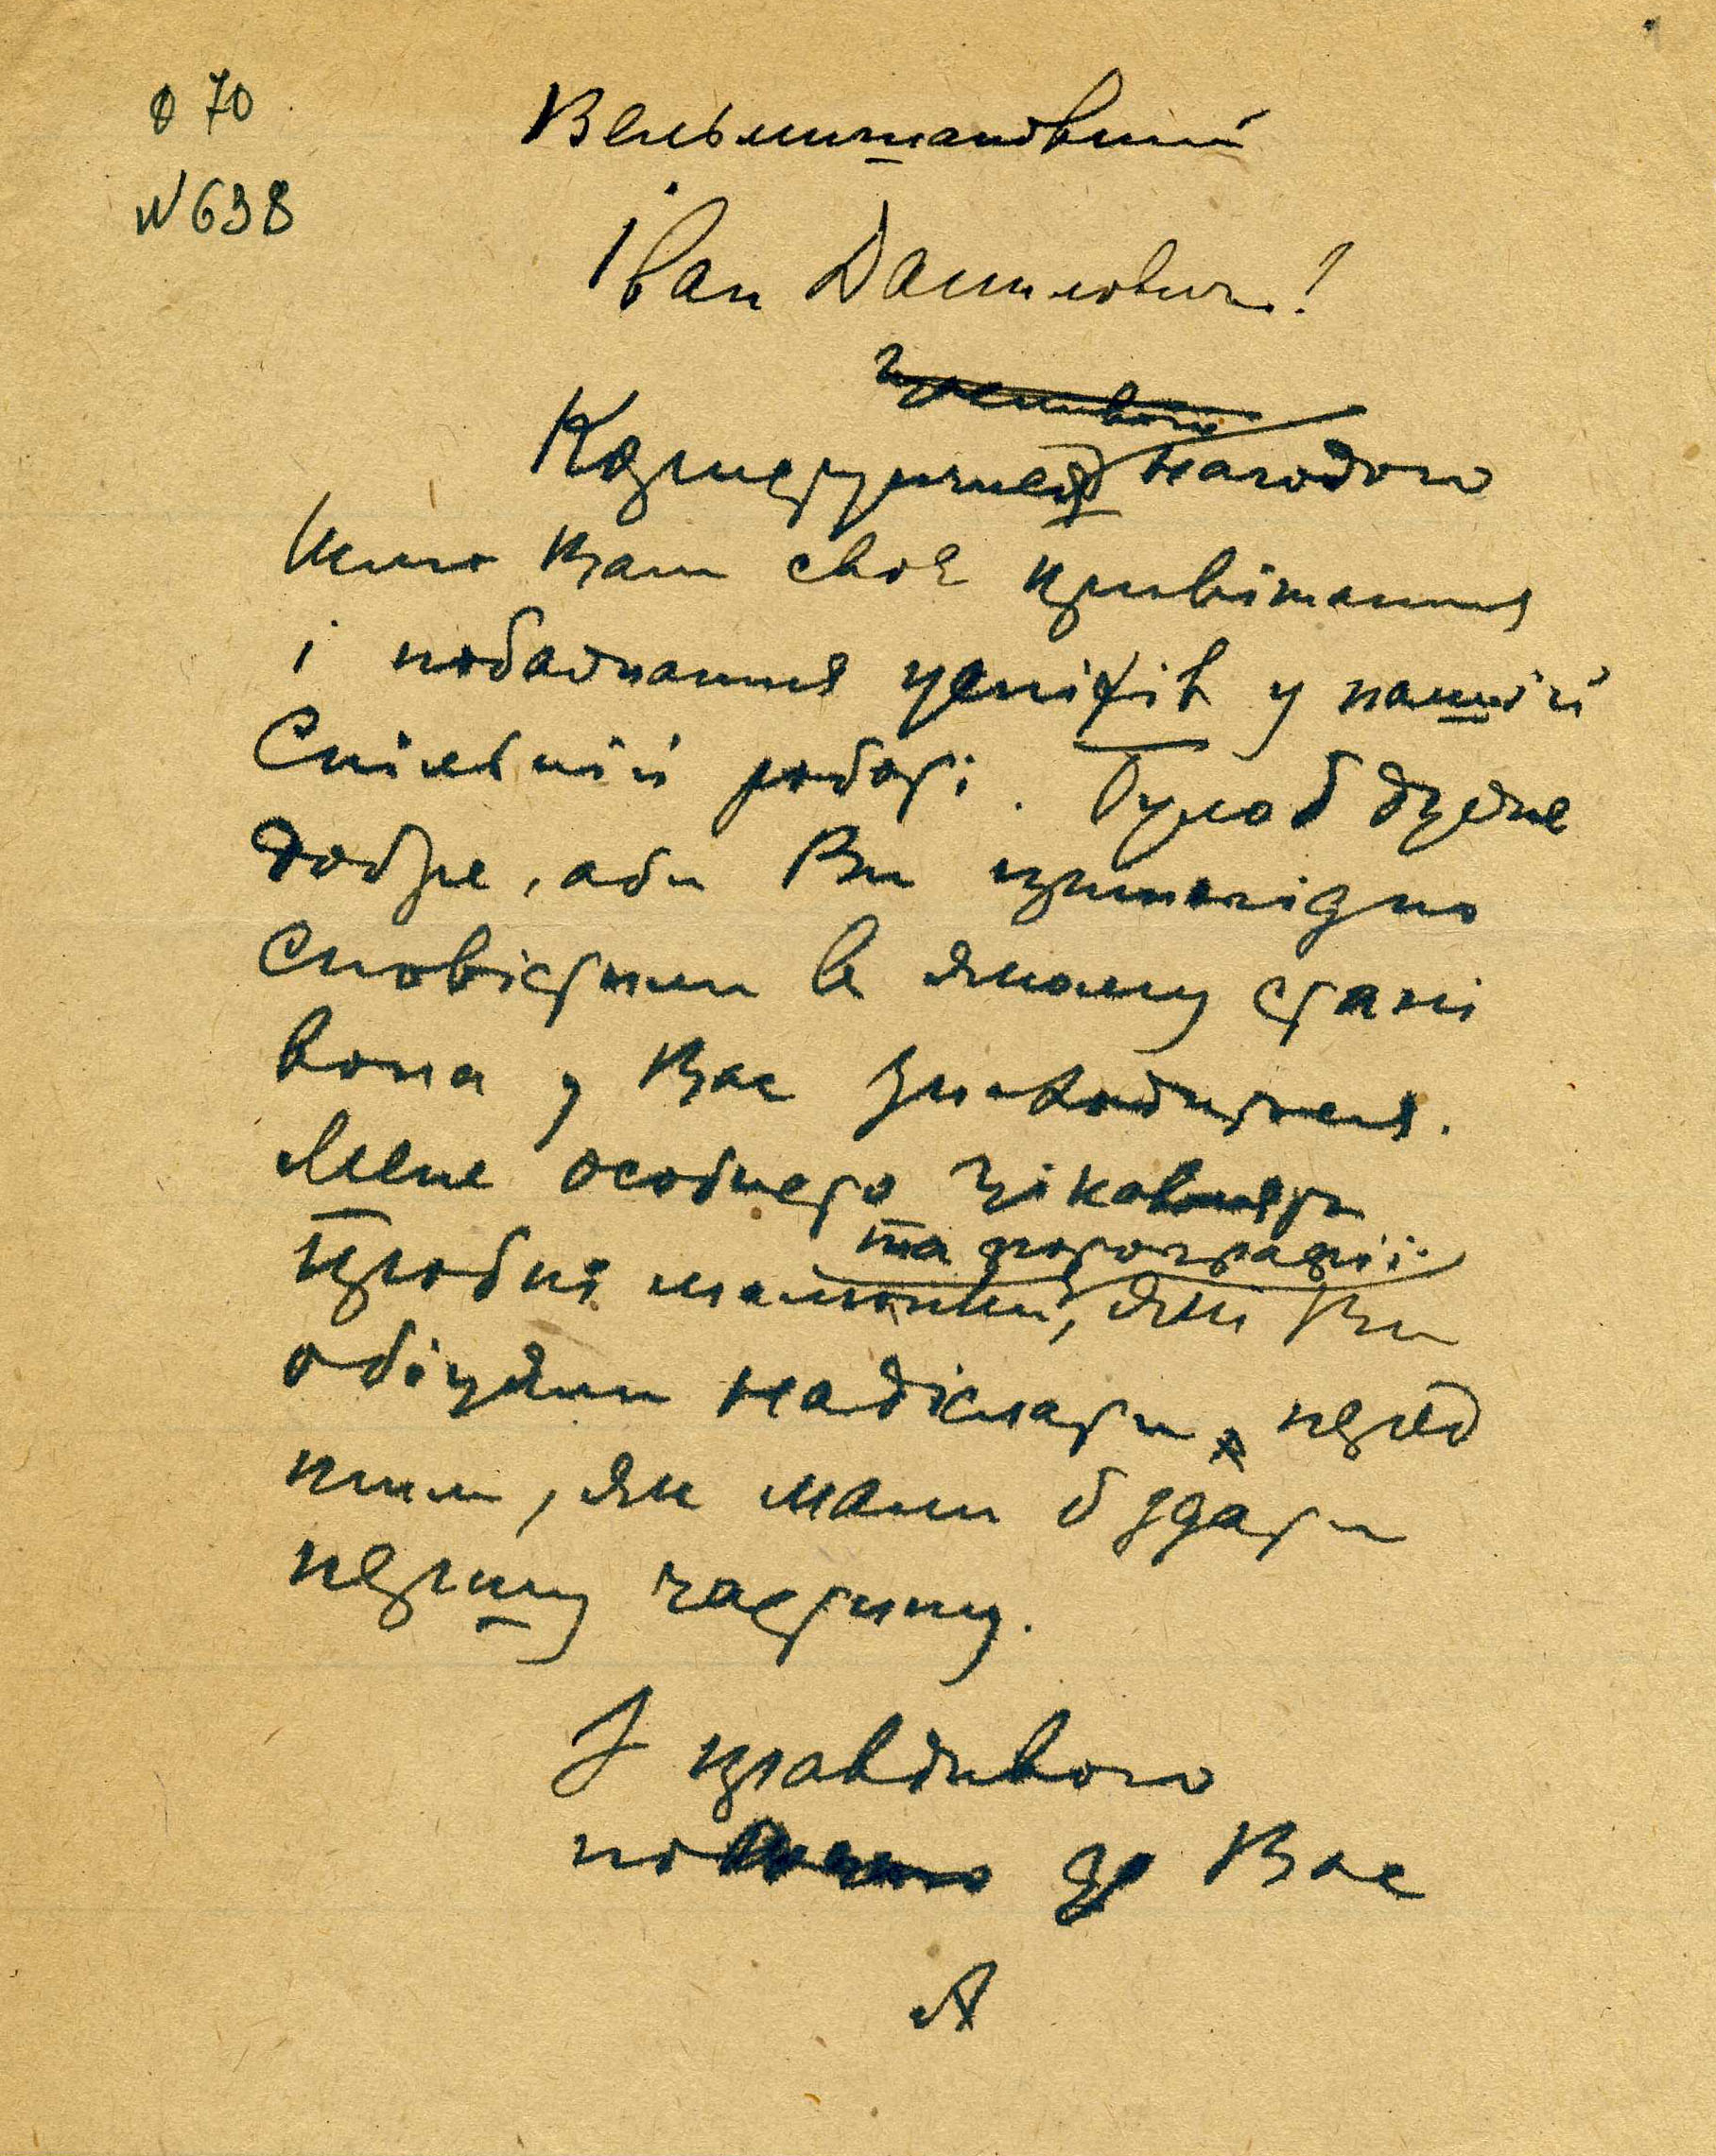 Ф 70
N 638
Вельмишановний
Іван Данилович!
Користуючись нагодою
шлю Вам своє привітання
і побажання успіхів у нашій
спільній роботі. Було б дуже
добре, аби Ви принагідно
сповістили в якому стані
вона у Вас знаходиться.
Мене особисто цікавлять
та фотографії
пробні малюнки, які Ви
обіцяли надіслати перед
тим, як мали б здати
першу частину.
З правдивою
пошаною до Вас
А